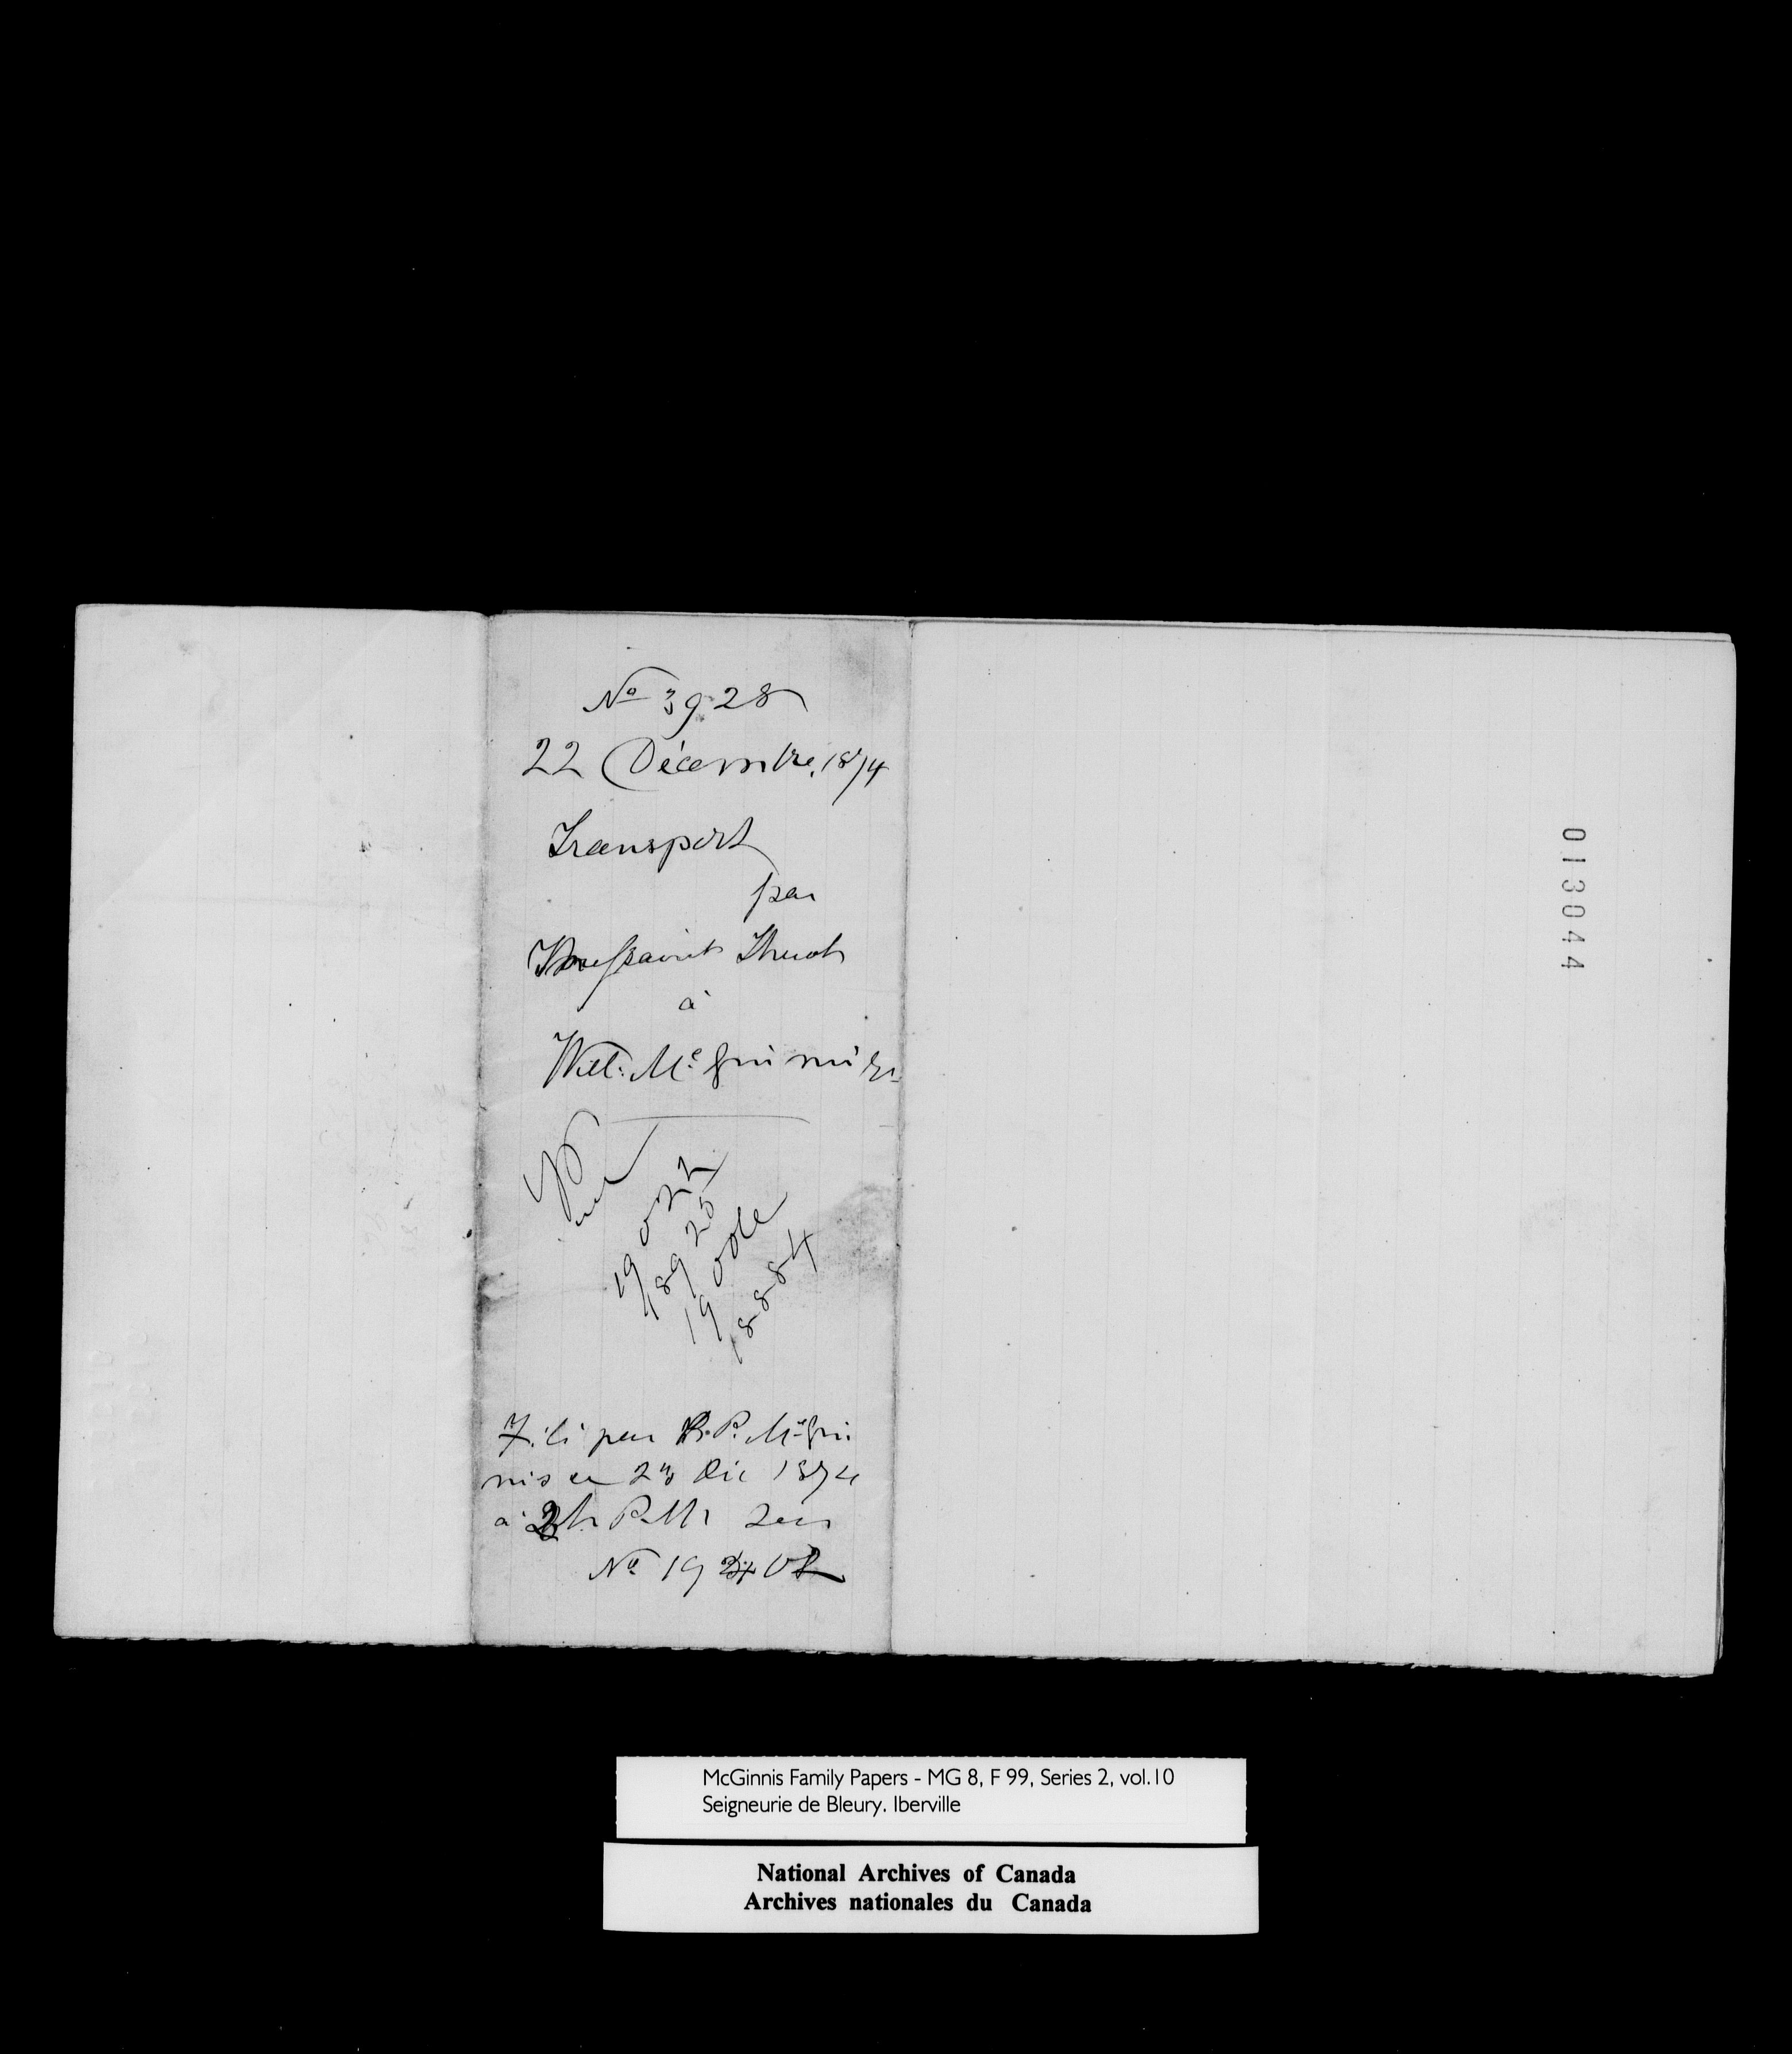 No 3928
22 Décembre, 1874
Transport
par
Toussaint
à
Will. McGinnis
19 022
18925
19 002
1884
Filé par R. P. McGin
nis ce 23 Déc 1874
à 2 h P.M.
No 19
013044
McGinnis Family Papers - MG 8, F 99, Series 2, vol.10
Seigneurie de Bleury. Iberville
National Archives of Canada
Archives nationales du Canada